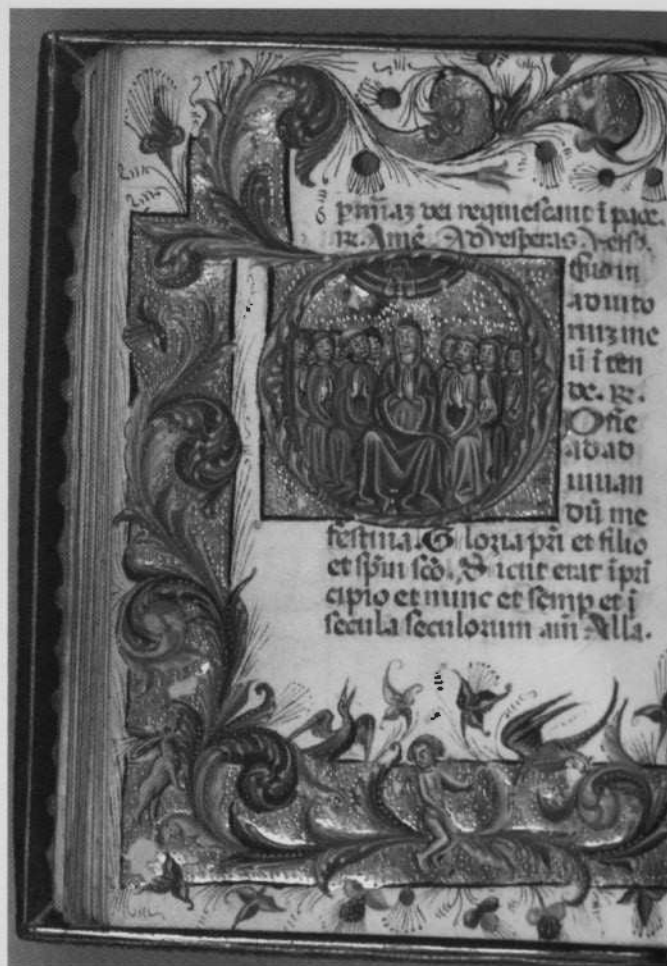 p miaz dei requiescant ī pace.
R. Amē. Ad vesperas. Verso.
Deus in
adiuto
rium me
ū ī ten
de. R.
Dn̄e
ad ad
iuuan
dū me
festina. Gloria pr̄i et filio
et sp̄iu sc̄o. Sicut erat ī pri
cipio et nunc et semp et ī
secula seculorum am̄ Alla.